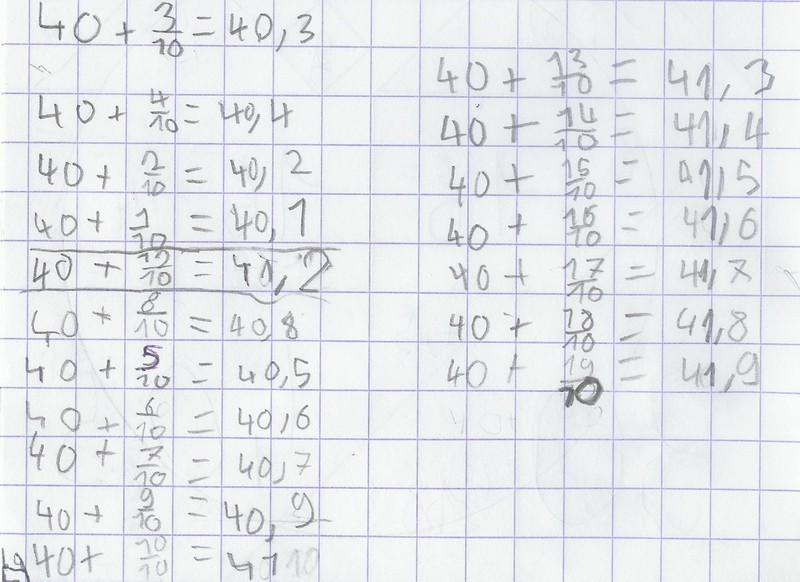 40 + 3/10 = 40,3
40 + 4/10 = 40,4
40 + 2/10 = 40,2
40 + 1/10 = 40,1
40 + 12/10 = 41,2
40 + 8/10 = 40,8
40 + 5/10 = 40,5
40 + 6/10 = 40,6
40 + 7/10 = 40,7
40 + 9/10 = 40,9
40 + 10/10 = 41
40 + 13/10 = 41,3
40 + 14/10 = 41,4
40 + 15/10 = 41,5
40 + 16/10 = 41,6
40 + 17/10 = 41,7
40 + 18/10 = 41,8
40 + 19/10 = 41,9